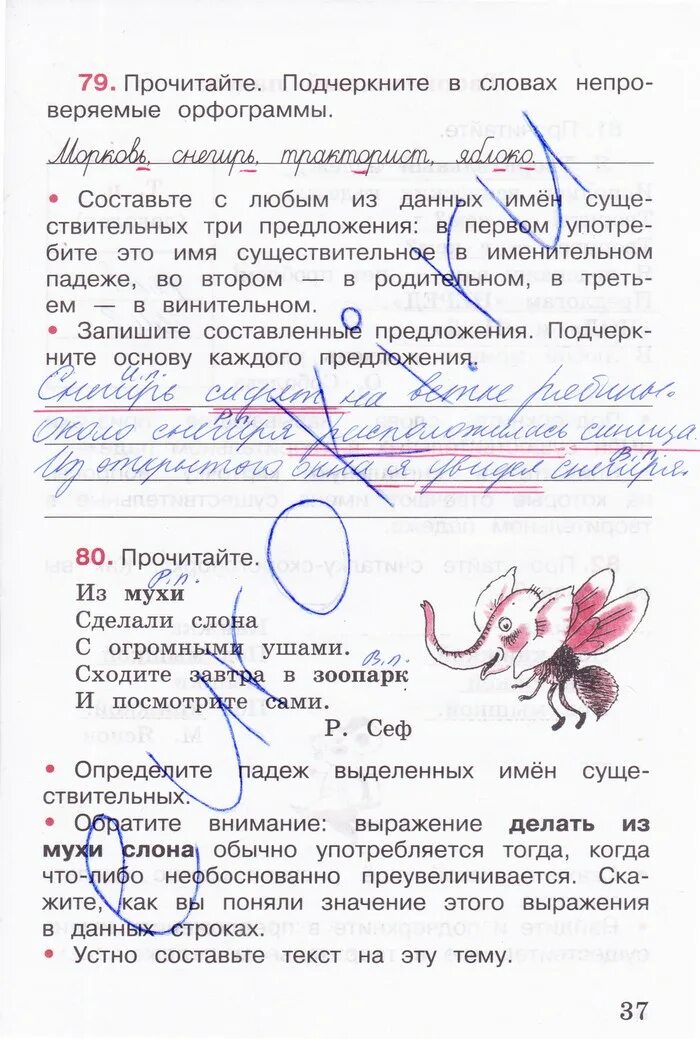 79. Прочитайте. Подчеркните в словах непро-
веряемые орфограммы.
Морковь, снегирь, тракторист, яблоко.
• Составьте с любым из данных имён суще-
ствительных три предложения: в первом употре-
бите это имя существительное в именительном
падеже, во втором — в родительном, в треть-
ем — в винительном.
• Запишите составленные предложения. Подчерк-
ните основу каждого предложения.
И.п.
Снегирь сидит на ветке рябины.
Р.п.
Около снегиря расположилась синица.
В.п.
Из открытого окна я увидел снегиря.
80. Прочитайте.
Р.п.
Из мухи
Сделали слона
С огромными ушами.
В.п.
Сходите завтра в зоопарк
И посмотрите сами.
Р. Сеф
• Определите падеж выделенных имён суще-
ствительных.
• Обратите внимание: выражение делать из
мухи слона обычно употребляется тогда, когда
что-либо необоснованно преувеличивается. Ска-
жите, как вы поняли значение этого выражения
в данных строках.
• Устно составьте текст на эту тему.
37